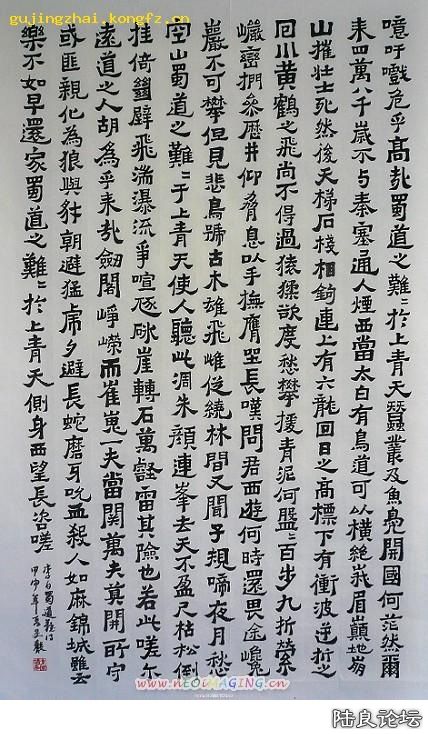 gujingzhai.kongfz.cn
噫吁戲危乎高哉蜀道之難〻於上青天蠶叢及魚鳧開國何茫然爾
来四萬八千歲不与秦塞通人煙西當太白有鳥道可以橫絕峩眉巔地崩
山摧壯士死然後天梯石棧相鉤連上有六龍回日之高標下有衝波逆折之
回川黃鶴之飛尚不得過猿猱欲度愁攀援青泥何盤〻百步九折縈
巖巒捫參歷井仰脅息以手撫膺坐長嘆問君西遊何時還畏途巉
巖不可攀但見悲鳥號古木雄飛雌從繞林間又聞子規啼夜月愁
空山蜀道之難〻于上青天使人聽此凋朱顏連峯去天不盈尺枯松倒
挂倚絕壁飛湍瀑流爭喧豗砯崖轉石萬壑雷其險也若此嗟尔
遠道之人胡為乎来哉劍閣崢嶸而崔嵬一夫當関萬夫莫開所守
或匪親化為狼與豺朝避猛虎夕避長蛇磨牙吮血殺人如麻錦城雖云
樂不如早還家蜀道之難〻於上青天側身西望長咨嗟
李白蜀道難詩
甲申年
www.NEOIMAGING.cn
陆良论坛